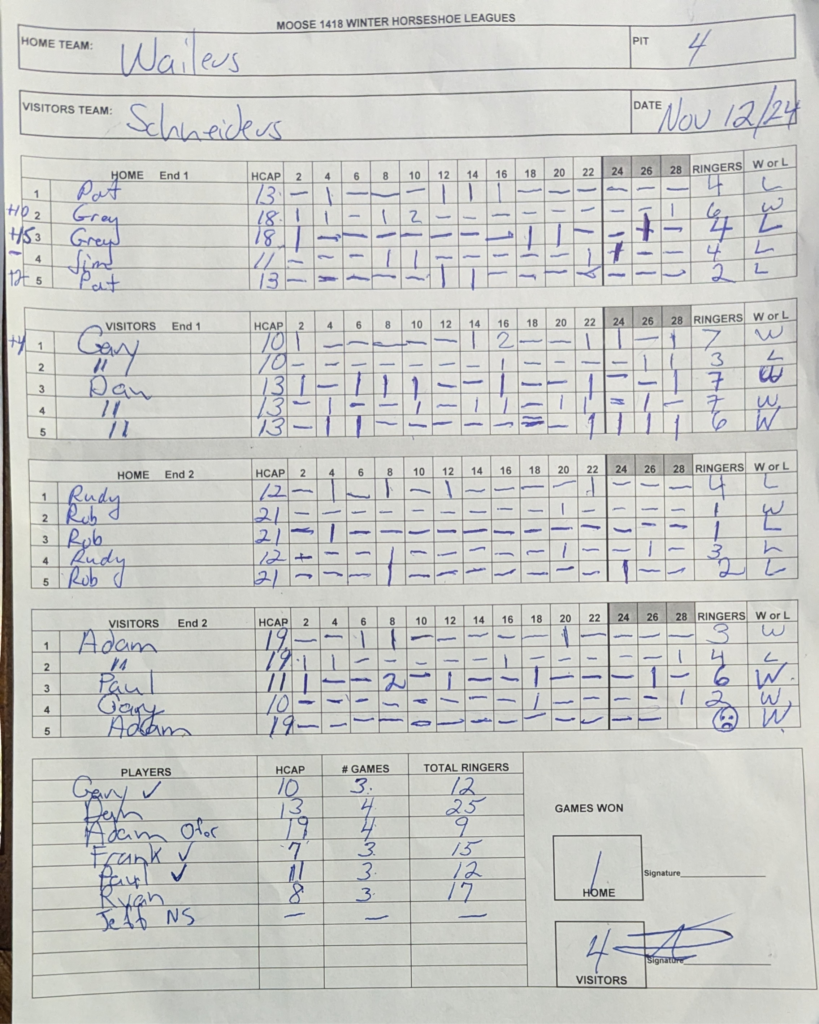 MOOSE 1418 WINTER HORSESHOE LEAGUES
HOME TEAM: Wailers PIT 4
VISITORS TEAM: Schneiders DATE Nov 12/24
HOME End 1 HCAP 2 4 6 8 10 12 14 16 18 20 22 24 26 28 RINGERS W or L
1 Pat 13 - 1 - - - 1 1 1 - - - - - - 4 L
+10 2 Greg 18 1 1 - 1 2 - - - - - - - - 1 6 W
+15 3 Greg 18 1 - - - - - - - 1 1 - - 1 - 4 L
- 4 Jim 11 - - - 1 1 - - - - - 1 1 - - 4 L
+2 5 Pat 13 - - - - - 1 1 - - - - - - - 2 L
VISITORS End 1 HCAP 2 4 6 8 10 12 14 16 18 20 22 24 26 28 RINGERS W or L
+4 1 Gary 10 1 - - - - - 1 2 - - 1 1 - 1 7 W
2 " 10 - - - - - - - 1 - - - - 1 1 3 L
3 Dan 13 1 - 1 1 1 - - 1 - - 1 - - 1 7 W
4 " 13 - 1 - - 1 - 1 1 - 1 1 - 1 - 7 W
5 " 13 - 1 1 - - - - - - - 1 1 1 1 6 W
HOME End 2 HCAP 2 4 6 8 10 12 14 16 18 20 22 24 26 28 RINGERS W or L
1 Rudy 12 - 1 - 1 - 1 - - - - 1 - - - 4 L
2 Rob 21 - - - - - - - - - 1 - - - - 1 W
3 Rob 21 - 1 - - - - - - - - - - - - 1 L
4 Rudy 12 - - - 1 - - - - - 1 - - 1 - 3 L
5 Rob 21 - - - 1 - - - - - - - 1 - - 2 L
VISITORS End 2 HCAP 2 4 6 8 10 12 14 16 18 20 22 24 26 28 RINGERS W or L
1 Adam 19 - - 1 1 - - - - - 1 - - - - 3 W
2 " 19 1 1 - - - - - 1 - - - - - 1 4 L
3 Paul 11 1 - - 2 - 1 - - 1 - - - 1 - 6 W.
4 Gary 10 - - - - - - - - 1 - - - - 1 2 W
5 Adam 19 - - - - - - - - - - - - - W
PLAYERS HCAP # GAMES TOTAL RINGERS
Gary ✓ 10 3 12
Dan 13 4 25
Adam Ofor 19 4 9
Frank ✓ 7 3 15
Paul ✓ 11 3 12
Ryan 8 3 17
Jeff NS - - -
GAMES WON
1
HOME
Signature
4
VISITORS
Signature